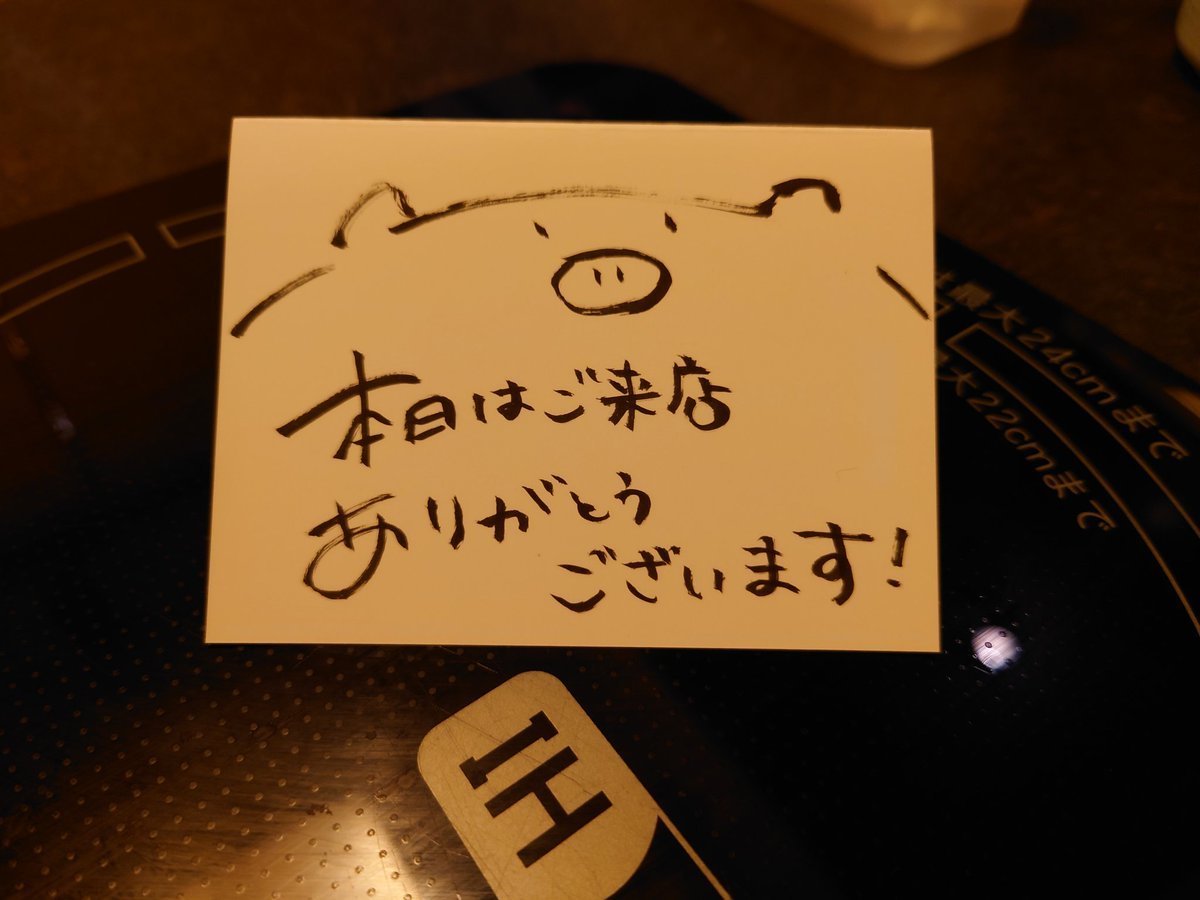 本日はご来店
ありがとう
ございます!
最大24cmまで
最大22cmまで
IH